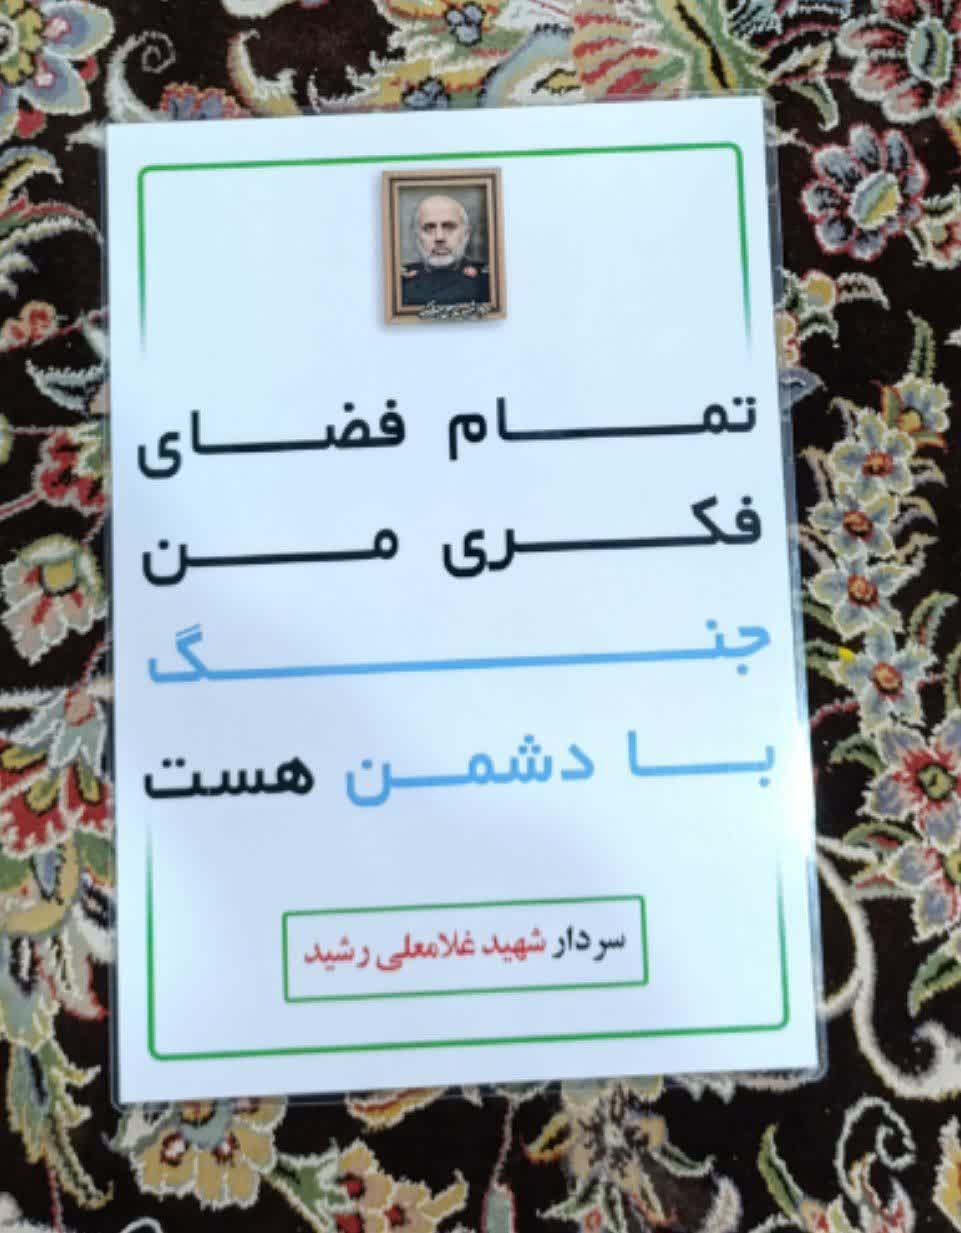 تمام فضای
فکری من
جنگ
با دشمن هست
سردار شهید غلامعلی رشید